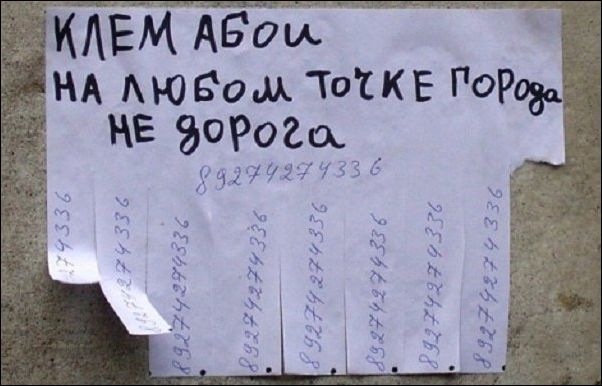 КЛЕМ АБОИ
НА ЛЮБОМ ТОЧКЕ ГОРОДА
НЕ ДОРОГА
89274274336
74336
89274274336
89274274336
89274274336
89274274336
89274274336
89274274336
89274274336